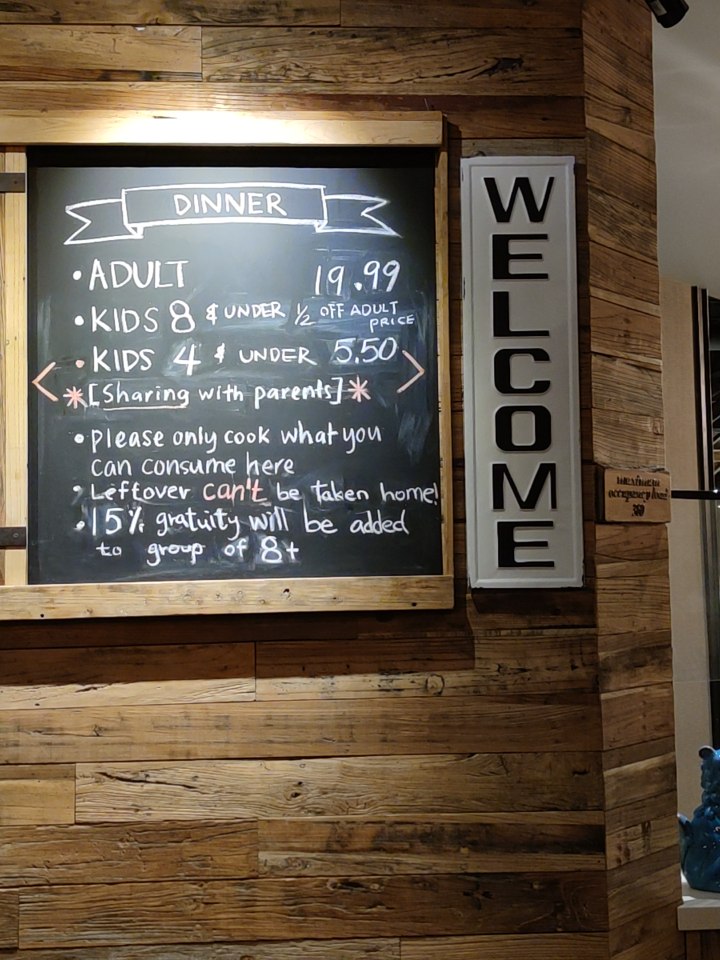 DINNER
• ADULT 19.99
• KIDS 8 & UNDER 1/2 OFF ADULT PRICE
• KIDS 4 & UNDER 5.50
*[Sharing with parents]*
• please only cook what you
can consume here
• Leftover can't be taken home!
• 15% gratuity will be added
to group of 8+
WELCOME
maximum
occupancy load
360